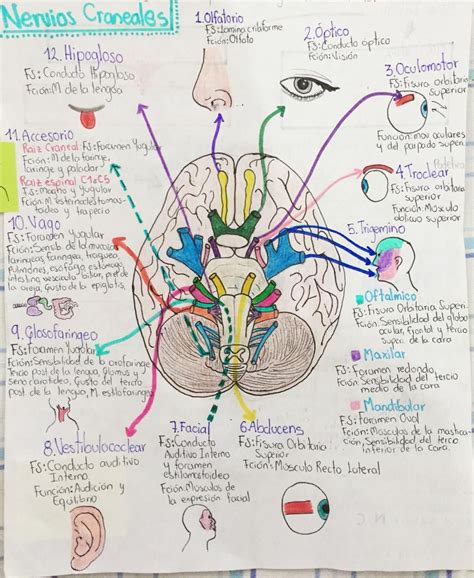 Nervios Craneales
1.Olfatorio
FS:Lamina criforme
Fción:Olfato
2.Óptico
FS:Conducto óptico
Fción:Visión
3.Oculomotor
FS:Fisura orbitaria
superior
Función:mov oculares
y del parpado superior
4.Troclear
FS:Fisura orbitaria
superior
Función Músculo
oblicuo superior
5.Trigemino
Oftalmico
FS:Fisura Orbitaria Superior
Fción:Sensibilidad del globo
ocular, frontal y tercio
super de la cara
Maxilar
FS: Foramen redondo
Fción Sensibilidad del tercio
medio de la cara
Mandibular
FS:foramen Oval
Fción:Músculos de la
Fción, Sensibilidad del tercio
inferior de la cara.
6.Abducens
FS:Fisura Orbitario
Superior
Fción:Músculo Recto Lateral
7.Facial
FS:Conducto
Auditivo Interno
y foramen
estilomastoideo
Fción.Músculos de
la expresión facial
8.Vestibulococlear
FS:Conducto auditivo
Interno
Función:Audición y
Equilibrio
9.Glosofaringeo
FS:foramen Yugular
Fción:Sensibilidad de la orofaringe
Tercio post de la lengua, Glomus y
Seno carotideo, Gusto del tercio
post de la lengua, M.estilofaringeo
10.Vago
FS: Foramen Yugular
Fción: Sensib de la mucosa
faringea, laringea, traquea,
Pulmones, esófago, estómago,
intestino, vesicula biliar, piel de
la oreja, Gusto de la epiglotis,
11.Accesorio
Raiz Craneal FS:foramen Yugular
Fción:M de la faringe,
laringe y paladar
Raiz espinal C1aC5
FS:magno y yugular
Fción:M esternocleidomas-
toideo y trapecio
12.Hipogloso
FS:Conducto Hipogloso
Fción:M de la lengua